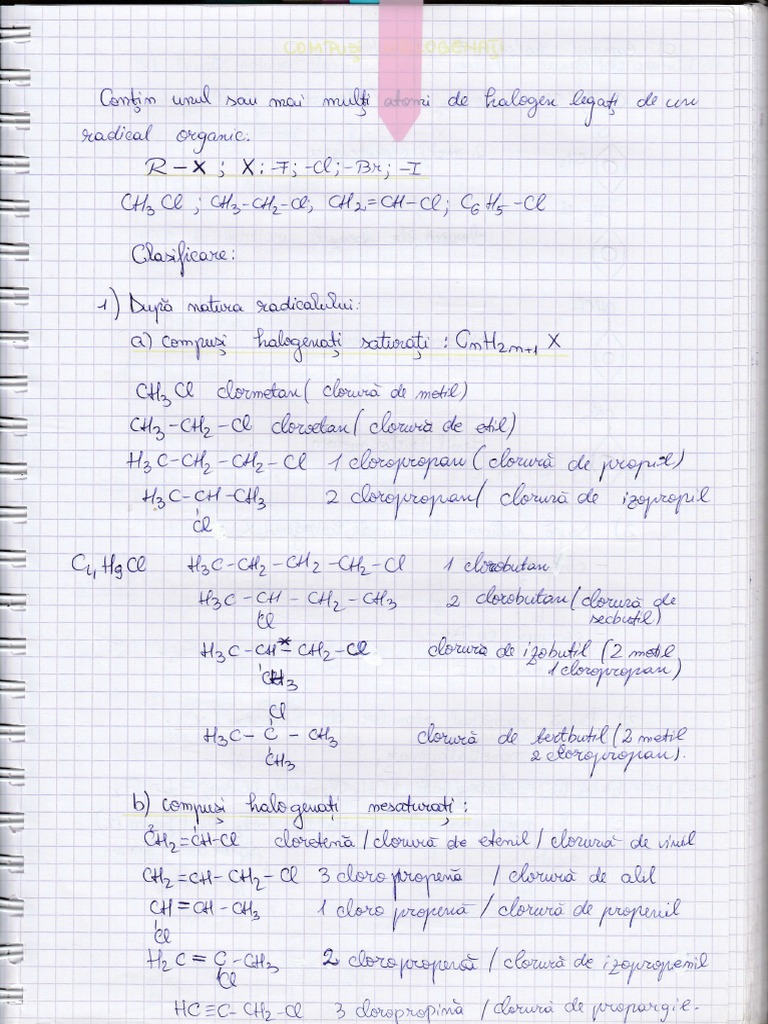 COMPUȘI HALOGENAȚI
Conțin unul sau mai mulți atomi de halogen legați de un
radical organic.
R-X ; X: -F; -Cl; -Br; -I
CH3Cl ; CH3-CH2-Cl; CH2=CH-Cl; C6H5-Cl
Clasificare:
1) După natura radicalului:
a) compuși halogenați saturați : CnH2n+1 X
CH3Cl clormetan (clorură de metil)
CH3-CH2-Cl cloroetan (clorura de etil)
H3C-CH2-CH2-Cl 1 cloropropan (clorură de propil)
H3C-CH-CH3 2 cloropropan / clorură de izopropil
Cl
C4H9Cl H3C-CH2-CH2-CH2-Cl 1 clorobutan
H3C-CH-CH2-CH3 2 clorobutan (clorură de
Cl secbutil)
H3C-CH*-CH2-Cl clorura de izobutil (2 metil
CH3 1 cloropropan)
Cl
H3C-C-CH3 clorură de tertbutil (2 metil
CH3 2 cloropropan).
b) compuși halogenați nesaturați :
CH2=CH-Cl cloretenă / clorură de etenil / clorură de vinil
CH2=CH-CH2-Cl 3 cloro propenă / clorură de alil
CH=CH-CH3 1 cloro propenă / clorură de propenil
Cl
H2C=C-CH3 2 cloropropenă / clorură de izopropenil
Cl
HC≡C-CH2-Cl 3 cloropropină / clorură de propargil.